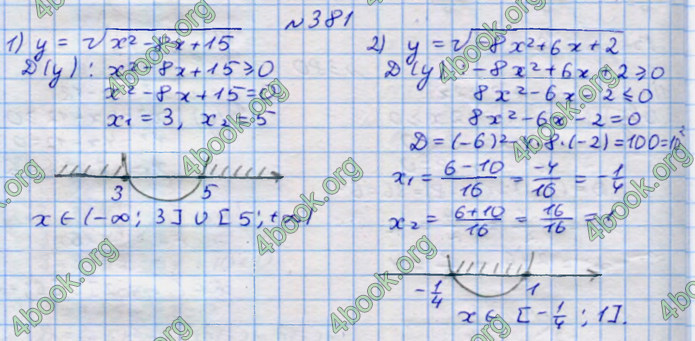 № 381
1) y = √(x² - 8x + 15)
D(y): x² - 8x + 15 ⩾ 0
x² - 8x + 15 = 0
x₁ = 3, x₂ = 5
3 5
x ∈ (-∞; 3] ∪ [5; +∞)
2) y = √(-8x² + 6x + 2)
D(y): -8x² + 6x + 2 ⩾ 0
8x² - 6x - 2 ⩽ 0
8x² - 6x - 2 = 0
D = (-6)² - 4·8·(-2) = 100 = 10²
x₁ = (6-10)/16 = -4/16 = -1/4
x₂ = (6+10)/16 = 16/16 = 1
-1/4 1
x ∈ [-1/4; 1].
4book.org
4book.org
4book.org
4book.org
4book.org
4book.org